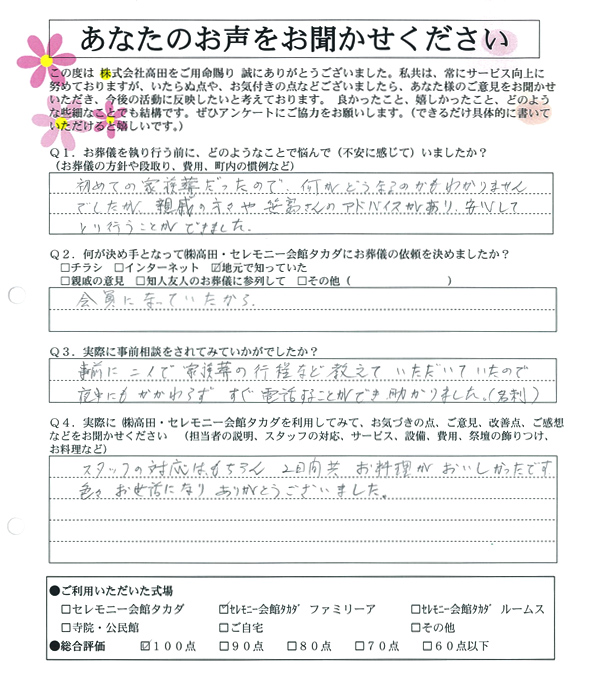 あなたのお声をお聞かせください
この度は 株式会社高田をご用命賜り 誠にありがとうございました。私共は、常にサービス向上に
努めておりますが、いたらぬ点や、お気付きの点などございましたら、あなた様のご意見をお聞かせ
いただき、今後の活動に反映したいと考えております。 良かったこと、嬉しかったこと、どのよう
な些細なことでも結構です。ぜひアンケートにご協力をお願いします。(できるだけ具体的に書いて
いただけると嬉しいです。)
Q1. お葬儀を執り行う前に、どのようなことで悩んで(不安に感じて)いましたか?
(お葬儀の方針や段取り、費用、町内の慣例など)
初めての家族葬だったので、何がどうなるのかもわかりません
でしたが 親戚の方々や 笹高さんのアドバイスがあり、安心して
とり行うことができました。
Q2. 何が決め手となって㈱高田・セレモニー会館タカダにお葬儀の依頼を決めましたか?
□チラシ □インターネット ☑地元で知っていた
□親戚の意見 □知人友人のお葬儀に参列して □その他( )
会員になっていたから.
Q3. 実際に事前相談をされてみていかがでしたか?
事前に二人で 家族葬の行程など教えて いただいていたので
夜中にもかかわらず すぐ電話することができ 助かりました。
Q4. 実際に ㈱高田・セレモニー会館タカダを利用してみて、お気づきの点、ご意見、改善点、ご感想
などをお聞かせください (担当者の説明、スタッフの対応、サービス、設備、費用、祭壇の飾りつけ、
お料理など)
スタッフの対応はもちろん 2日間共 お料理が おいしかったです
色々 お世話になり ありがとうございました。
●ご利用いただいた式場
□セレモニー会館タカダ ☑ｾﾚﾓﾆｰ会館ﾀｶﾀﾞ ファミリーア □ｾﾚﾓﾆｰ会館ﾀｶﾀﾞ ルームス
□寺院・公民館 □ご自宅 □その他
●総合評価 ☑100点 □90点 □80点 □70点 □60点以下